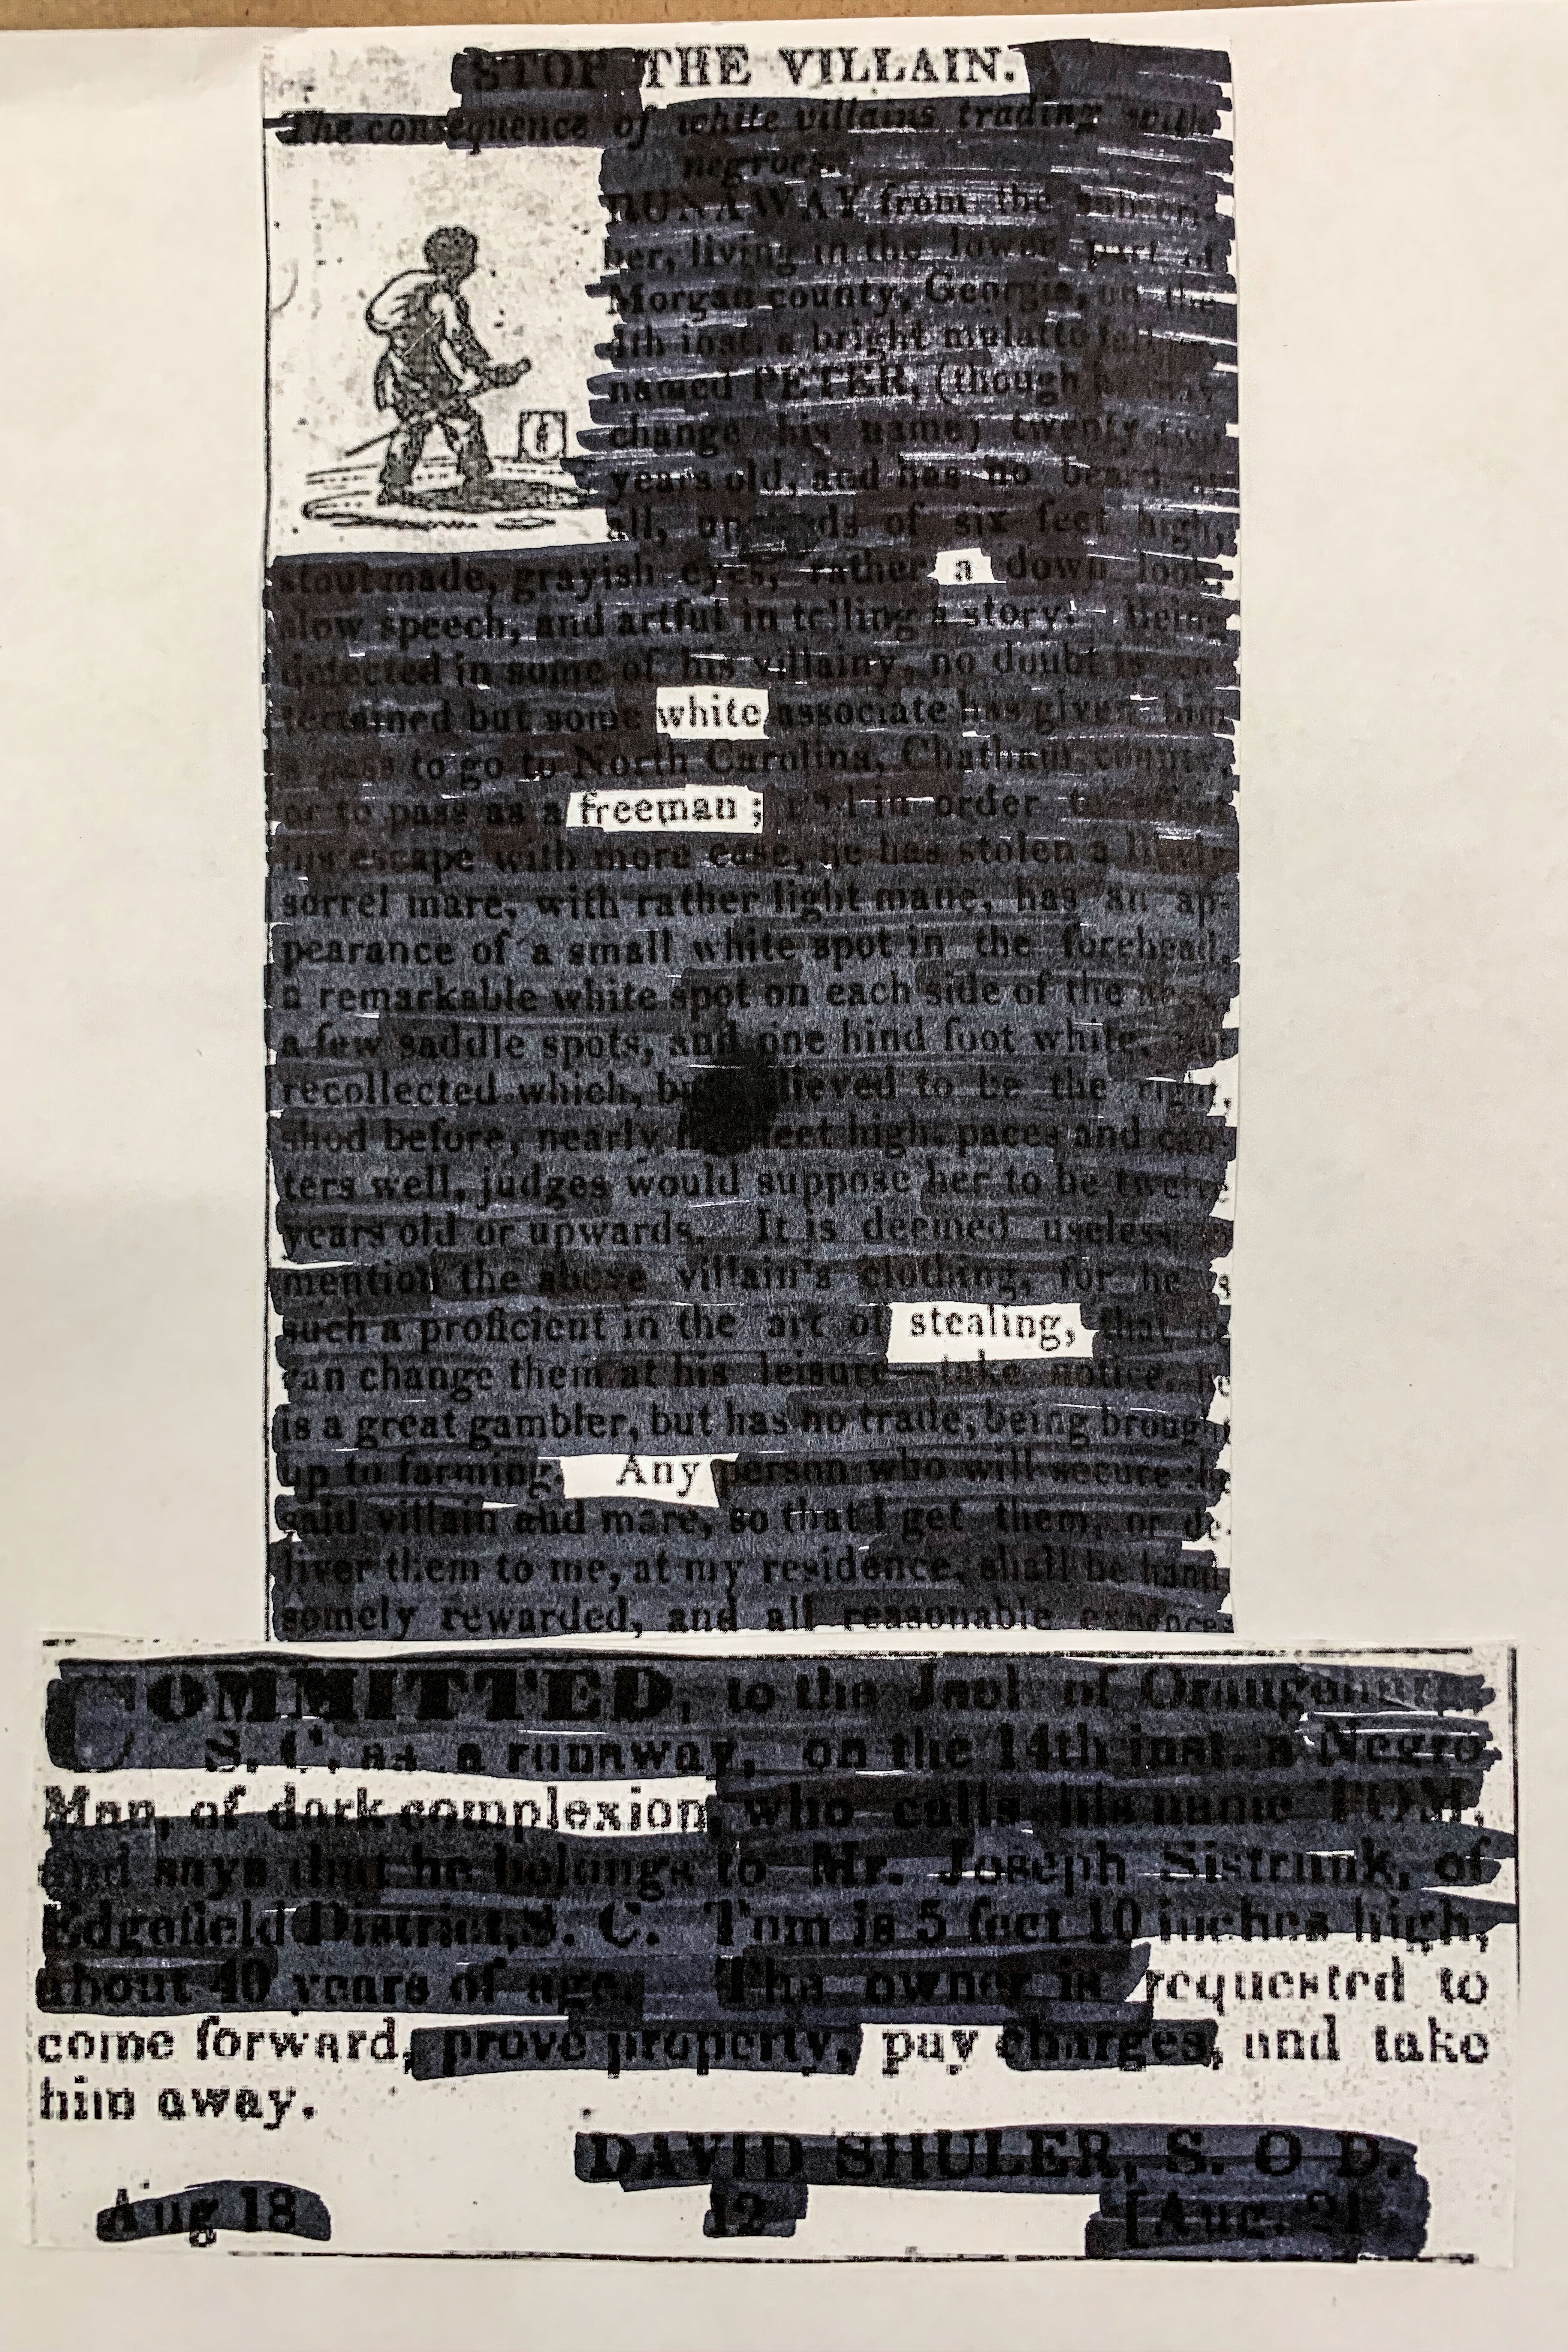 STOP THE VILLAIN.
The consequence of white villains trading with
negroes.
RUNAWAY from the subscri-
ber, living in the lower part of
Morgan county, Georgia, on the
4th inst. a bright mulatto fellow
named PETER, (though he may
change his name) twenty
years old, and has no beard at
all, upwards of six feet high,
stout made, grayish eyes, rather a down look,
slow speech, and artful in telling a story. Being
detected in some of his villainy, no doubt is en-
tertained but some white associate has given him
a pass to go to North Carolina, Chatham county,
or to pass as a freeman; and in order to
his escape with more ease, he has stolen a likely
sorrel mare, with rather light mane, has an ap-
pearance of a small white spot in the forehead,
a remarkable white spot on each side of the
a few saddle spots, and one hind foot white, not
recollected which, but believed to be the right,
shod before, nearly feet high, paces and can-
ters well, judges would suppose her to be twelve
years old or upwards. It is deemed useless
mention the above villain's clothing, for he is
such a proficient in the art of stealing, that he
can change them at his leisure—take notice, he
is a great gambler, but has no trade, being brought
up to farming. Any person who will secure the
said villain and mare, so that I get them, or de-
liver them to me, at my residence, shall be hand-
somely rewarded, and all reasonable expences
COMMITTED, to the Jaol of Orangeburg,
S. C. as a runaway, on the 14th inst. a Negro
Man, of dark complexion, who calls his name TOM,
and says that he belongs to Mr. Joseph Sistrunk, of
Edgefield District, S. C. Tom is 5 feet 10 inches high,
about 40 years of age. The owner is requested to
come forward, prove property, pay charges, and take
him away.
DAVID SHULER, S. O D.
Aug 18 12 [Aug. 21